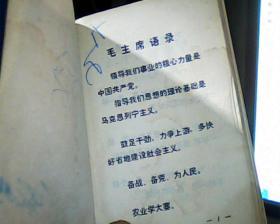 毛主席语录
领导我们事业的核心力量是
中国共产党。
指导我们思想的理论基础是
马克思列宁主义。
鼓足干劲、力争上游、多快
好省地建设社会主义。
备战、备荒、为人民。
农业学大寨。
- 1 -